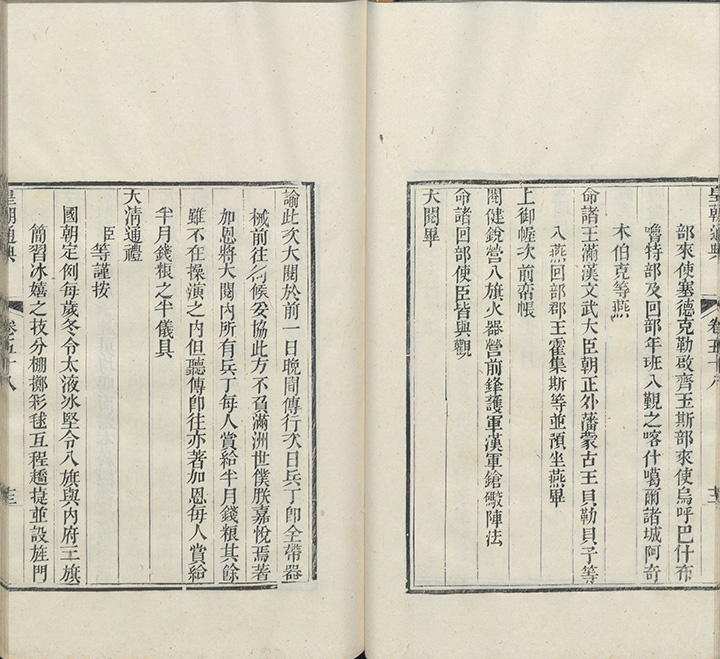 皇朝通典 卷五十八
部來使塞德克勒啟齊玉斯部來使烏呼巴什布
嚕特部及回部年班入覲之喀什噶爾諸城阿奇
木伯克等燕
命諸王滿漢文武大臣朝正外藩蒙古王貝勒貝子等
入燕回部郡王霍集斯等並預坐燕畢
上御幄次前黃帳
閱健銳營八旗火器營前鋒護軍漢軍鎗礮陣法
命諸回部使臣皆與觀
大閱畢
諭此次大閱於前一日晚間傳行次日兵丁即全帶器
械前往伺候妥協此方不負滿洲世僕朕嘉悅焉著
加恩將大閱內所有兵丁每人賞給半月錢糧其餘
雖不在操演之內但聽傳卽往亦著加恩每人賞給
半月錢糧之半儀具
大清通禮
臣等謹按
國朝定例每歲冬令太液冰堅令八旗與內府三旗
簡習冰嬉之技分棚擲彩毬互程趫捷並設旌門
皇朝通典 卷五十八 三